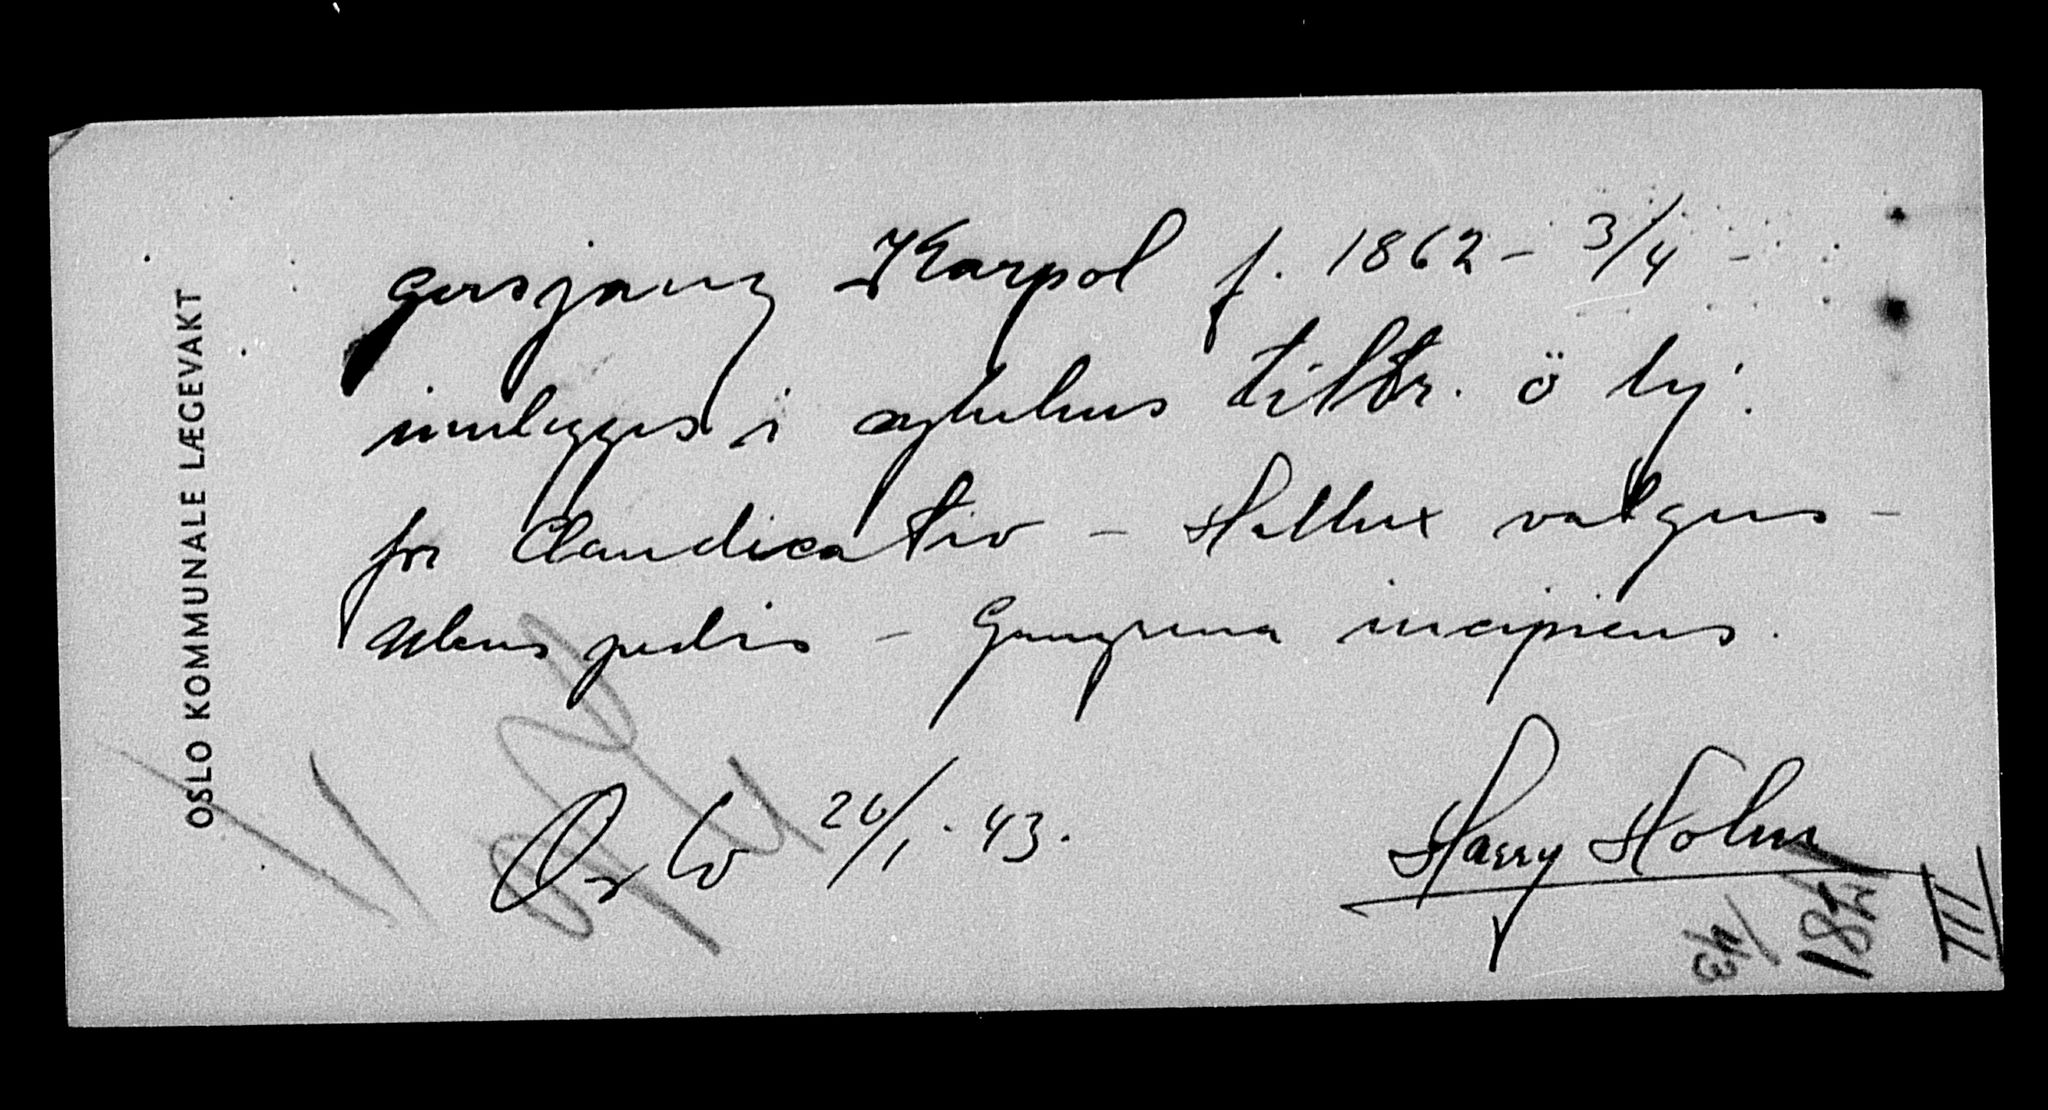 OSLO KOMMUNALE LÆGEVAKT
Karpol f. 1862 - 3/4 -
innlegges i sykehus tiltr. ö hj.
for Claudicatio - Hallux valgus -
Ulcus pedis - Gangrena incipiens.
Oslo 26/1. 43.
Harry Holm
III